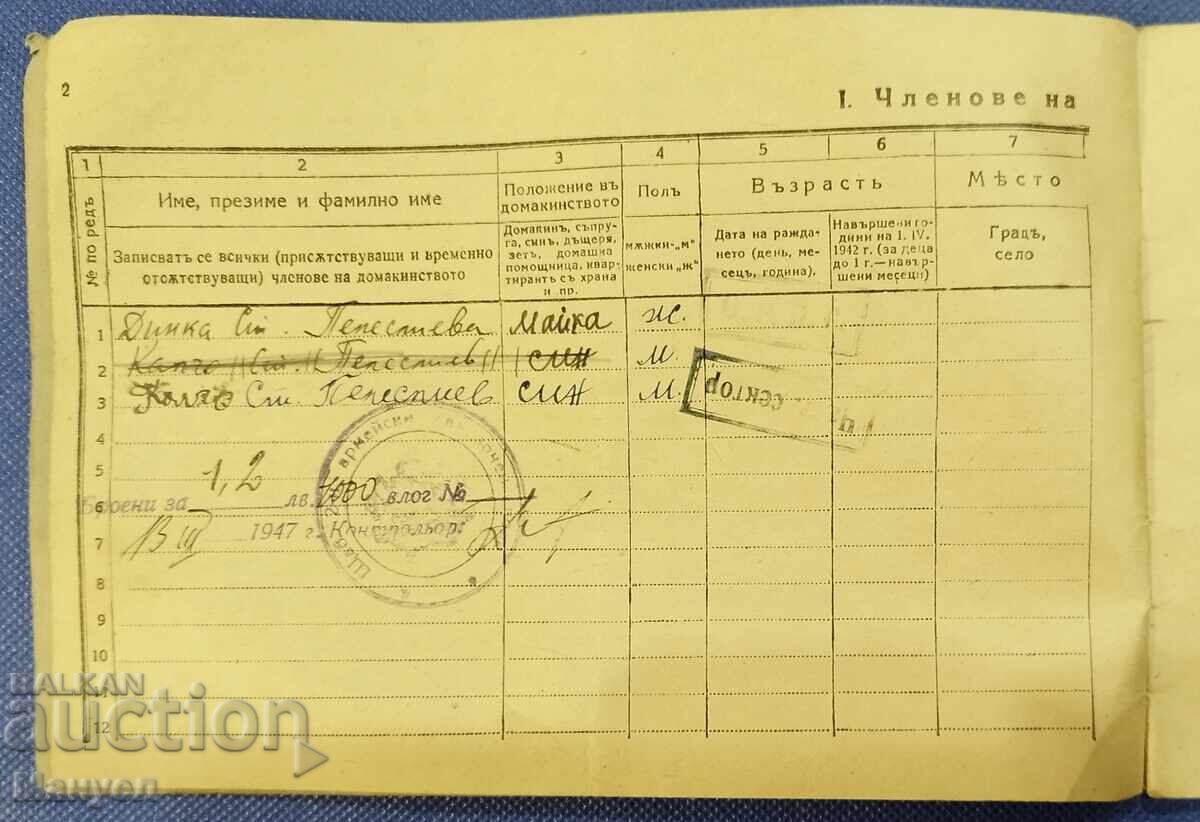 2
I. Членове на
1 2 3 4 5 6 7
№ по редъ
Име, презиме и фамилно име
Положение въ домакинството
Полъ
Възрасть
Мѣсто
Записватъ се всички (присѫтствуващи и временно
отсѫтствуващи) членове на домакинството
Домакинъ, съпру-
га, синъ, дъщеря,
зетъ, домашна
помощница, квар-
тирантъ съ храна
и пр.
мѫжки-„м"
женски „ж"
Дата на ражда-
нето (день, ме-
сецъ, година),
Навършени го-
дини на 1. IV.
1942 г. (за деца
до 1 г.—навър-
шени месеци)
Градъ,
село
1 Динка Ст. Пепестиева майка ж.
2 Ст. Пепестиев син м.
3 Ст. Пепестиев син м.
СЕКТОР
4
5
6 Броени за 1,2 лв. 1000 влог №
7 13 III 1947 г. Контрольор:
армейски
8
9
10
11
12
BALKAN
auction
Мануел